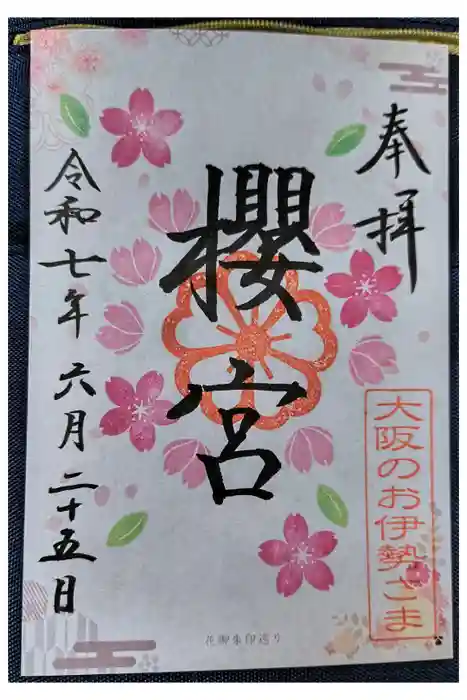 奉拝
櫻宮
大阪のお伊勢さま
令和七年六月二十五日
花御朱印巡り